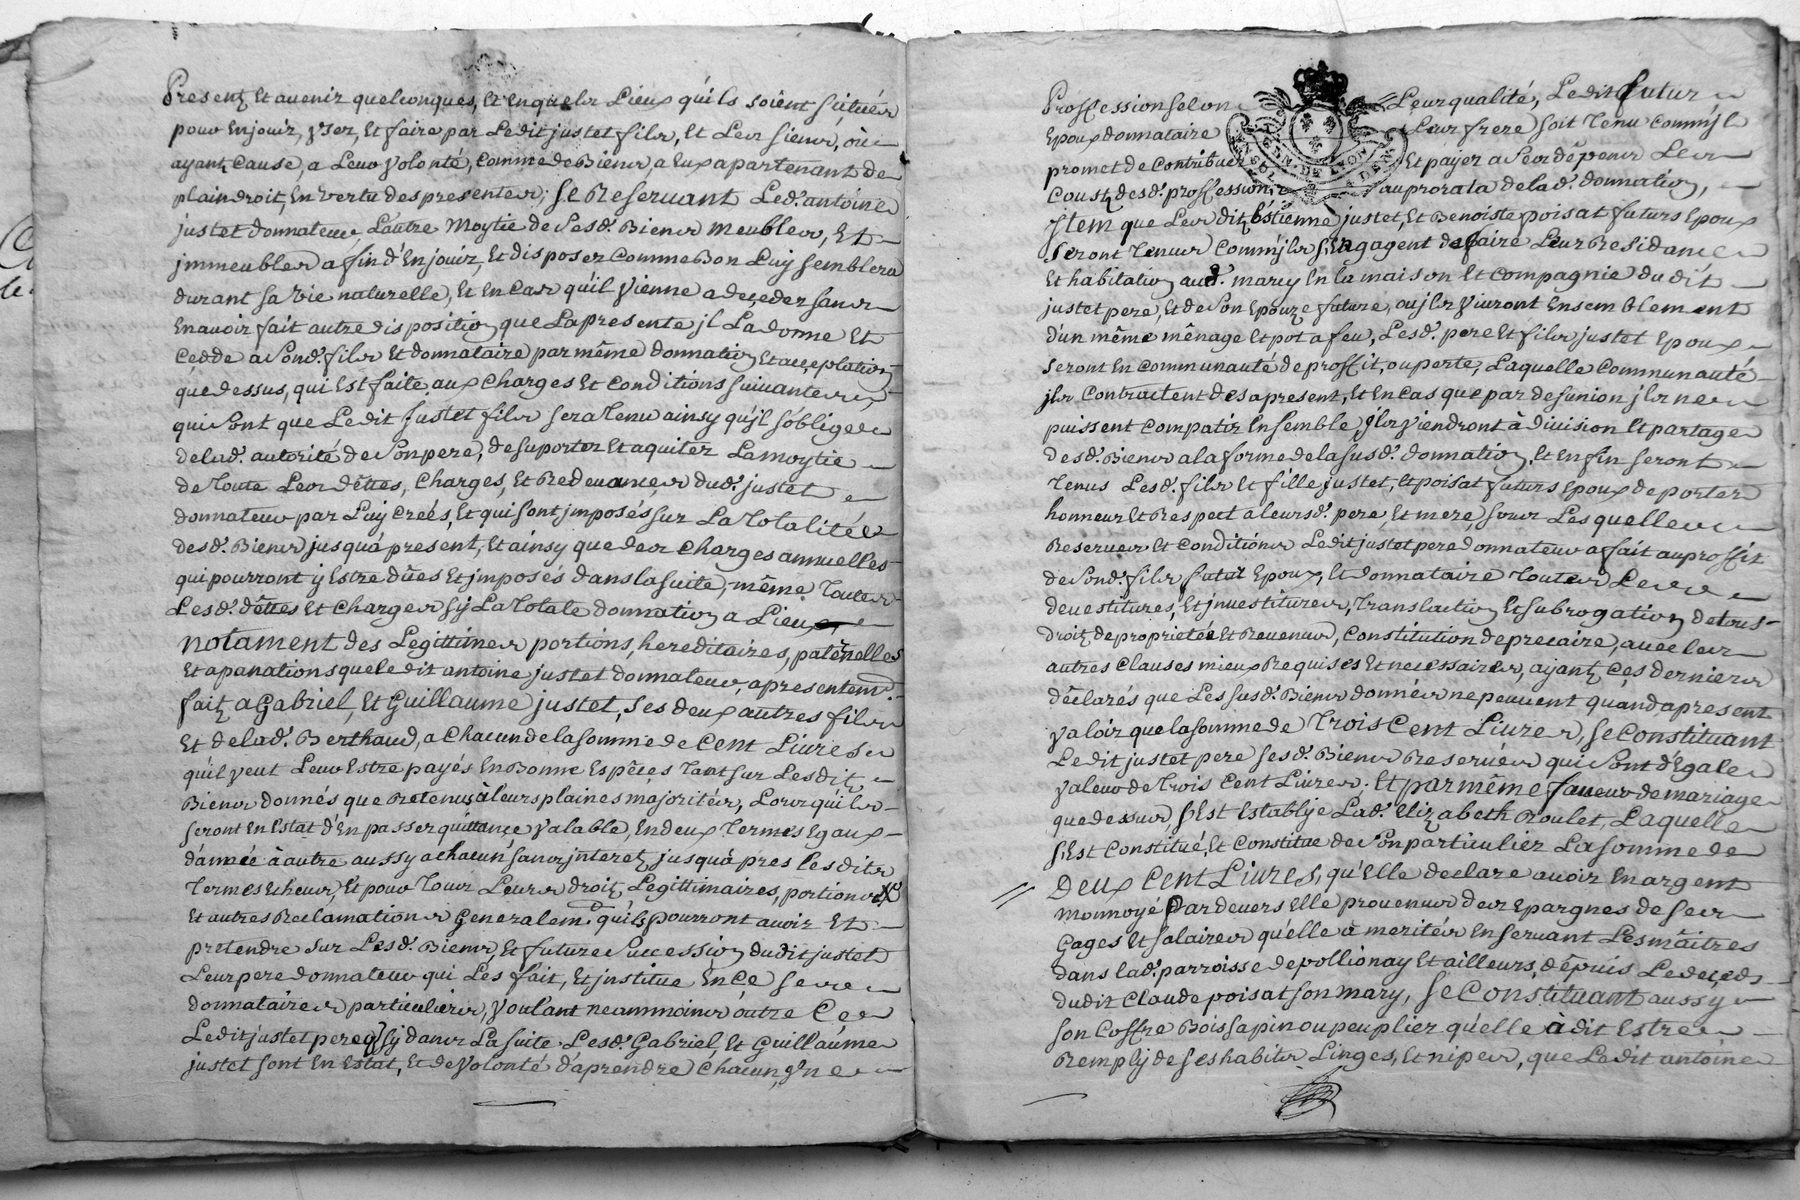 Present et avenir quelconques, et en quels Lieux qu'ils soient scitués
pour En jouir, Vser, et faire par Ledit justet fils, et Les siens, où
ayant Cause, a Leur Volonté, Comme de Biens, a Eux apartenant de
plain droit, en Vertu des presentes, se Reservant Led. antoine
justet donnateur L'autre Moytie de Sesd. Biens Meubles, Et
jmmeubles afin d'En jouir, et disposer Comme Bon Luy semblera
durant sa Vie naturelle, Et En Cas qu'il Vienne a deçeder sans
En avoir fait autre disposition que La presente jl La donne Et
Cedde a Sond. fils Et donnataire par même donnation Et acceptation
que dessus, qui Est faite aux Charges Et Conditions suivantes,
qui Sont que Ledit justet fils sera Tenu ainsy qu'jl s'oblige
de Lad. autorité de Son pere, de suporter Et aquiter La moytie
de Toute Les dêttes, Charges, Et Redevances dud. justet
donnateur par Luy Creés, Et qui sont jmposés sur La Totalitée
desd. Biens jusqu'à present, Et ainsy que des Charges annuelles
qui pourront y Estre dûes Et jmposés dans la suite, même Toutes
Lesd. dêttes Et Charges sy La Totale donnation a Lieu,
notament des Legittimes portions, hereditaires, paternelles
Et apanations que Le dit antoine justet donnateur, a presentem.
fait a Gabriel, Et Guillaume justet, ses deux autres fils
Et de Lad. Berthaud, a Chacun de la somme de Cent Livres
qu'il veut Leur Estre payés En Bonne Espêces Tant sur Lesdit
Biens donnés que Retenus à leurs plaines majorités, Lors qu'ils
seront En Estat d'En passer quittance Valable, En deux Termes Egaux
d'année à autre aussy a chacun sans jnteret, jusqu'à pres les dits
Termes Echeus, Et pour Tous Leurs droit Legittimaires, portions
Et autres Reclamations Generalem. qu'ils pourront avoir Et
pretendre sur Lesd. Biens, Et future Succession dudit justet
Leur pere donnateur qui Les fait, Et jnstitue En Ce ses
donnataires particuliers, Voulant neammoins outre Ce
Ledit justet pere q. sy dans La suite Lesd. Gabriel, Et Guillaume
justet sont En Estat, Et de Volonté d'aprendre Chacun Vne
Proffession selon Leur qualité, Ledit futur
Epoux donnataire Leur frere soit Tenu Comm'jl
promet de Contribuer Et payer a Ses dépens Les
Coust desd. proffession au prorata de lad. donnation,
Jtem que Les dit Estienne justet, Et Benoiste poisat futurs Epoux
seront Tenus Comm'jls s'Engagent de faire Leur Residance
Et habitation aud. marcy En la maison Et Compagnie du dit
justet pere, Et de Son Epouze future, ou jls Vivront Ensemblement
d'un même mênage Et pot a feu, Lesd. pere Et fils justet Epoux
seront En Communauté de proffit, ou perte, Laquelle Communauté
jls Contractent des a present, Et En Cas que par desunion jls ne
puissent Compatir Ensemble, jls Viendront à division Et partage
desd. Biens a la forme de la susd. donnation, Et Enfin seront
Tenus Lesd. fils Et fille justet, Et poisat futurs Epoux de porter
honneur Et Respect a leursd. pere, Et mere, sous Lesquelles
Reserves Et Conditions Ledit justet pere donnateur a fait au proffit
de Sond. fils futur Epoux, Et donnataire Toutes Les
devestitures, Et jnvestitures, Translaction Et subrogation de tous
droit de proprietée Et Revenus, Constitution de precaire, avec les
autres Clauses mieux Requises Et necessaires, ayant Ces derniers
dêclarés que Les susd. Biens donnés ne peuvent quand a present
Valoir que la somme de Trois Cent Livres, se Constituant
Ledit justet pere ses d. Biens Reservés qui Sont d'Egale
Valeur de Trois Cent Livres. Et par même faveur de mariage
que dessus, s'Est Establye Lad. Elizabeth Roulet, Laquelle
s'Est Constitué, Et Constitue de Son particulier La somme de
Deux Cent Livres, qu'Elle declare avoir En argent
monnoyé Pardevers Elle provenus des Epargnes de Ses
Gages Et salaires qu'elle a merités En servant Les mâitres
dans lad. parroisse de pollionay Et ailleurs, dêpuis Le deçeds
dudit Claude poisat son mary, se Constituant aussy
son Coffre Bois sapin ou peuplier qu'elle à dit Estre
Remply de ses habits Linges, Et nipes, que Ledit antoine